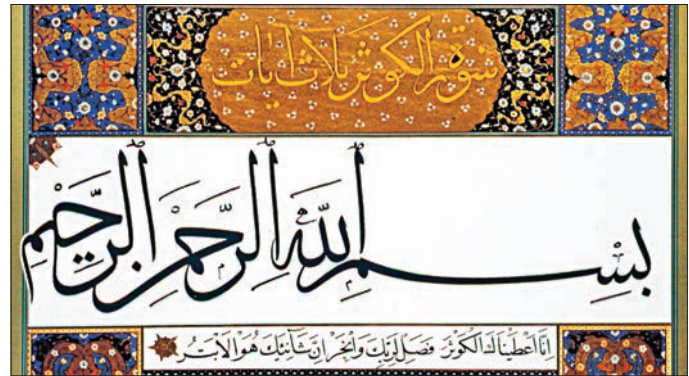 سورة الكوثر ثلاث آيات
بِسْمِ اللَّهِ الرَّحْمٰنِ الرَّحِيمِ
إِنَّا أَعْطَيْنَاكَ الْكَوْثَرَ فَصَلِّ لِرَبِّكَ وَانْحَرْ إِنَّ شَانِئَكَ هُوَ الْأَبْتَرُ